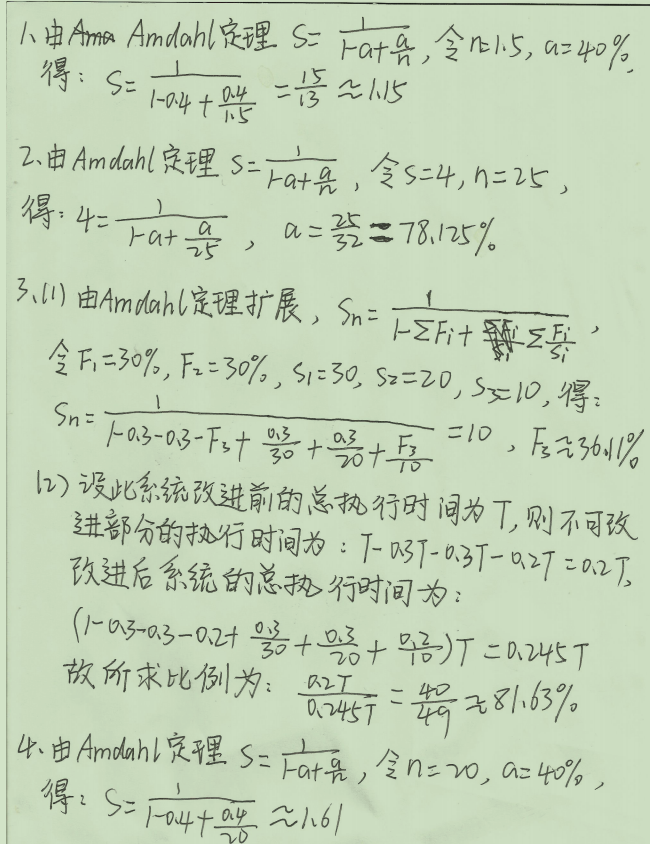 1、由Amdahl定理 S = 1/(1-a+a/n), 令n=1.5, a=40%,
得: S = 1/(1-0.4+0.4/1.5) = 15/13 ≈ 1.15
2、由Amdahl定理 S = 1/(1-a+a/n), 令S=4, n=25,
得: 4 = 1/(1-a+a/25), a = 25/32 = 78.125%
3、(1) 由Amdahl定理扩展, Sn = 1/(1-ΣFi+ΣFi/Si),
令F1=30%, F2=30%, S1=30, S2=20, S3=10, 得:
Sn = 1/(1-0.3-0.3-F3+0.3/30+0.3/20+F3/10) = 10, F3≈36.11%
(2) 设此系统改进前的总执行时间为T, 则不可改
进部分的执行时间为: T-0.3T-0.3T-0.2T=0.2T,
改进后系统的总执行时间为:
(1-0.3-0.3-0.2+0.3/30+0.3/20+0.2/10)T = 0.245T
故所求比例为: 0.2T/0.245T = 40/49 ≈ 81.63%
4、由Amdahl定理 S = 1/(1-a+a/n), 令n=20, a=40%,
得: S = 1/(1-0.4+0.4/20) ≈ 1.61